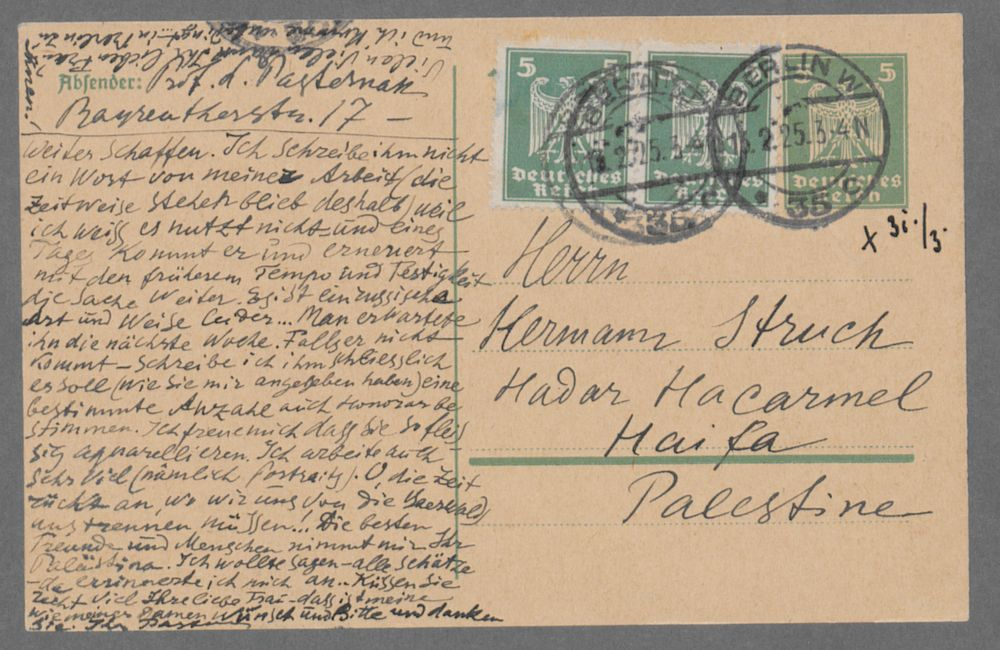 und ich komme
Vielen Vielen
Ihnen!
Absender: Prof. L. Pasternak
Bayreutherstr. 17 –
weiter schaffen. Ich schreibe ihm nicht
ein Wort von meiner Arbeit (die
zeitweise stehen blieb deshalb) weil
ich weiss es nutzt nicht – und eines
Tages kommt er und erneuert
mit den früherem Tempo und Festigkeit
die Sache weiter. Es ist ein russische
Art und Weise leider... Man erwartete
ihn die nächste Woche. Falls er nicht
kommt – schreibe ich ihm schliesslich
er soll (wie Sie mir angegeben haben) eine
bestimmte Anzahl auch Honorar be
stimmen. Ich freue mich dass Sie so fleis
sig aquarellieren. Ich arbeite auch
sehr viel (nämlich Portraits). O, die Zeit
rückt an, wo wir uns von die
uns trennen müssen... Die besten
Freunde und Menschen nimmt mir Ihr
Palästina. Ich wollte sagen – alle Schätze
– da errinnerte ich mich an.. Küssen Sie
recht viel Ihre liebe Frau – dass ist meine
wie meiner Damen Wunsch und Bitte und danken
Sie. Ihr Paster
5 5 5
Deutsches
Reich
Deutsches
Reich
Deutsches
Reich
BERLIN W
.2.25.3-4N
35 c
BERLIN W
13.2.25.3-4N
* 35 c
Herrn
Hermann Struck
Hadar Hacarmel
Haifa
Palestine